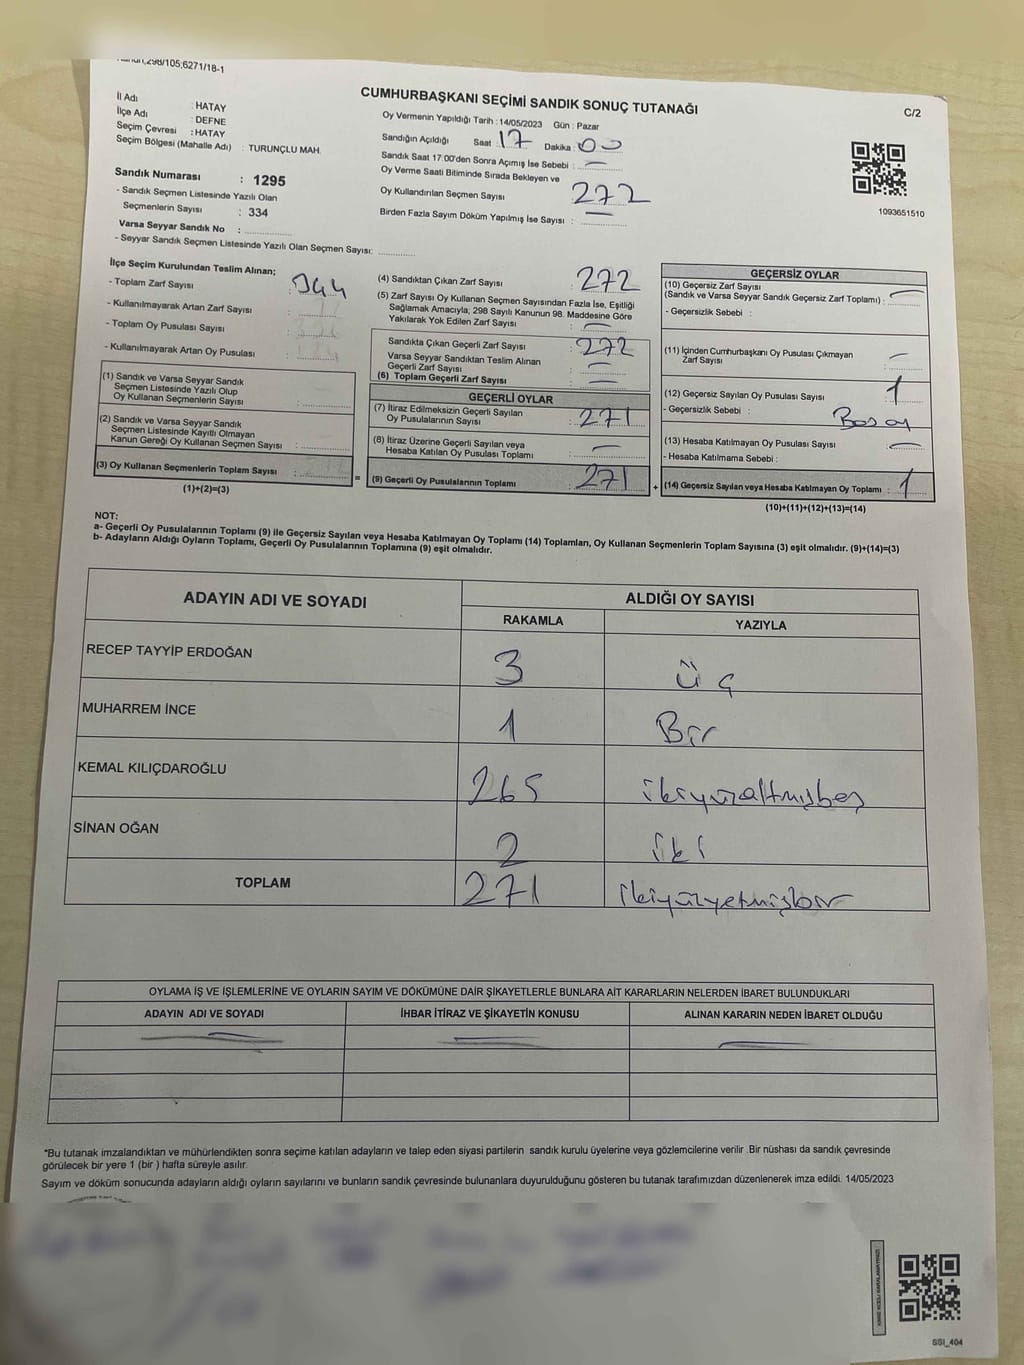 298/105,6271/18-1
CUMHURBAŞKANI SEÇİMİ SANDIK SONUÇ TUTANAĞI
C/2
İl Adı : HATAY
İlçe Adı : DEFNE
Seçim Çevresi : HATAY
Seçim Bölgesi (Mahalle Adı) : TURUNÇLU MAH.
Oy Vermenin Yapıldığı Tarih : 14/05/2023 Gün : Pazar
Sandığın Açıldığı Saat : 17 Dakika : 00
Sandık Saat 17:00'den Sonra Açımış İse Sebebi : —
Oy Verme Saati Bitiminde Sırada Bekleyen ve
Oy Kullandırılan Seçmen Sayısı 272
Birden Fazla Sayım Döküm Yapılmış İse Sayısı : —
1093651510
Sandık Numarası : 1295
- Sandık Seçmen Listesinde Yazılı Olan
Seçmenlerin Sayısı : 334
Varsa Seyyar Sandık No :
- Seyyar Sandık Seçmen Listesinde Yazılı Olan Seçmen Sayısı:
İlçe Seçim Kurulundan Teslim Alınan;
- Toplam Zarf Sayısı : 344
- Kullanılmayarak Artan Zarf Sayısı :
- Toplam Oy Pusulası Sayısı :
- Kullanılmayarak Artan Oy Pusulası :
(1) Sandık ve Varsa Seyyar Sandık
Seçmen Listesinde Yazılı Olup
Oy Kullanan Seçmenlerin Sayısı :
(2) Sandık ve Varsa Seyyar Sandık
Seçmen Listesinde Kayıtlı Olmayan
Kanun Gereği Oy Kullanan Seçmen Sayısı :
(3) Oy Kullanan Seçmenlerin Toplam Sayısı :
(1)+(2)=(3)
(4) Sandıktan Çıkan Zarf Sayısı : 272
(5) Zarf Sayısı Oy Kullanan Seçmen Sayısından Fazla İse, Eşitliği
Sağlamak Amacıyla; 298 Sayılı Kanunun 98. Maddesine Göre
Yakılarak Yok Edilen Zarf Sayısı : —
Sandıkta Çıkan Geçerli Zarf Sayısı : 272
Varsa Seyyar Sandıktan Teslim Alınan
Geçerli Zarf Sayısı : —
(6) Toplam Geçerli Zarf Sayısı : —
GEÇERLİ OYLAR
(7) İtiraz Edilmeksizin Geçerli Sayılan
Oy Pusulalarının Sayısı : 271
(8) İtiraz Üzerine Geçerli Sayılan veya
Hesaba Katılan Oy Pusulası Toplamı : —
(9) Geçerli Oy Pusulalarının Toplamı : 271
GEÇERSİZ OYLAR
(10) Geçersiz Zarf Sayısı
(Sandık ve Varsa Seyyar Sandık Geçersiz Zarf Toplamı) : —
- Geçersizlik Sebebi :
(11) İçinden Cumhurbaşkanı Oy Pusulası Çıkmayan
Zarf Sayısı : —
(12) Geçersiz Sayılan Oy Pusulası Sayısı : 1
- Geçersizlik Sebebi : Boş oy
(13) Hesaba Katılmayan Oy Pusulası Sayısı : —
- Hesaba Katılmama Sebebi :
(14) Geçersiz Sayılan veya Hesaba Katılmayan Oy Toplamı : 1
(10)+(11)+(12)+(13)=(14)
NOT:
a- Geçerli Oy Pusulalarının Toplamı (9) ile Geçersiz Sayılan veya Hesaba Katılmayan Oy Toplamı (14) Toplamları, Oy Kullanan Seçmenlerin Toplam Sayısına (3) eşit olmalıdır. (9)+(14)=(3)
b- Adayların Aldığı Oyların Toplamı, Geçerli Oy Pusulalarının Toplamına (9) eşit olmalıdır.
ADAYIN ADI VE SOYADI ALDIĞI OY SAYISI
RAKAMLA YAZIYLA
RECEP TAYYİP ERDOĞAN 3 üç
MUHARREM İNCE 1 Bir
KEMAL KILIÇDAROĞLU 265 ikiyüzaltmışbeş
SİNAN OĞAN 2 iki
TOPLAM 271 ikiyüzyetmişbir
OYLAMA İŞ VE İŞLEMLERİNE VE OYLARIN SAYIM VE DÖKÜMÜNE DAİR ŞİKAYETLERLE BUNLARA AİT KARARLARIN NELERDEN İBARET BULUNDUKLARI
ADAYIN ADI VE SOYADI İHBAR İTİRAZ VE ŞİKAYETİN KONUSU ALINAN KARARIN NEDEN İBARET OLDUĞU
*Bu tutanak imzalandıktan ve mühürlendikten sonra seçime katılan adayların ve talep eden siyasi partilerin sandık kurulu üyelerine veya gözlemcilerine verilir .Bir nüshası da sandık çevresinde
görülecek bir yere 1 (bir ) hafta süreyle asılır.
Sayım ve döküm sonucunda adayların aldığı oyların sayılarını ve bunların sandık çevresinde bulunanlara duyurulduğunu gösteren bu tutanak tarafımızdan düzenlenerek imza edildi. 14/05/2023
KARE KODU KARALAMAYINIZ!
SSI_404